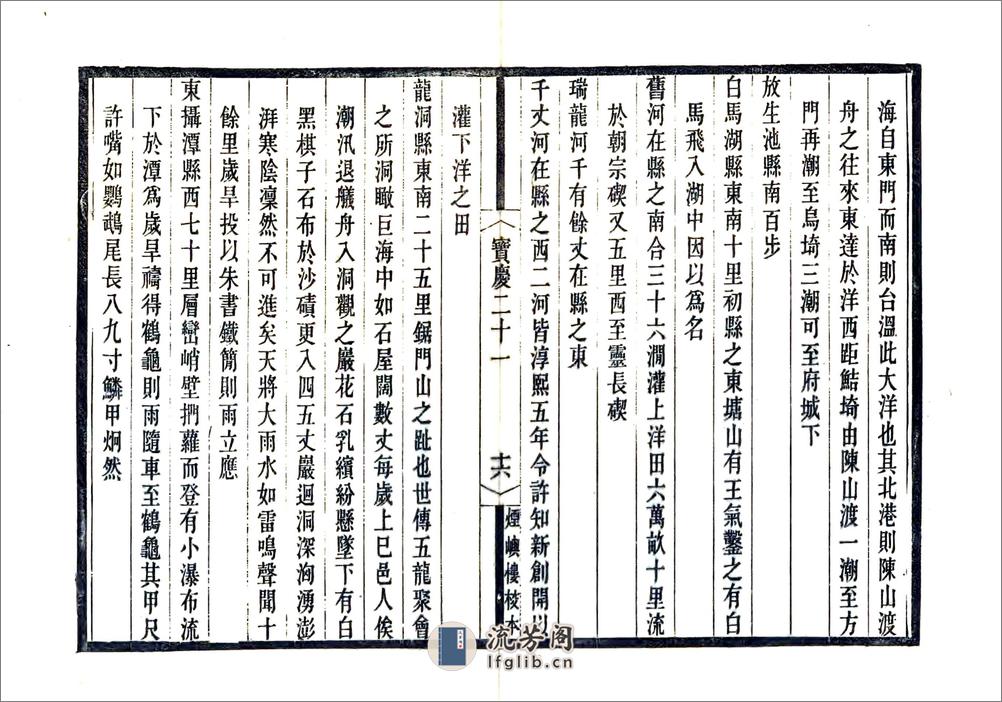 海自東門而南則台溫此大洋也其北港則陳山渡
舟之往來東達於洋西距鮚埼由陳山渡一潮至方
門再潮至烏埼三潮可至府城下
放生池縣南百步
白馬湖縣東南十里初縣之東塘山有王氣鑿之有白
馬飛入湖中因以爲名
舊河在縣之南合三十六澗灌上洋田六萬畝十里流
於朝宗碶又五里西至靈長碶
瑞龍河千有餘丈在縣之東
千丈河在縣之西二河皆淳熙五年令許知新創開以
寶慶二十一
十六
煙嶼樓校本
灌下洋之田
龍洞縣東南二十五里鋸門山之趾也世傳五龍聚會
之所洞瞰巨海中如石屋闊數丈每歲上巳邑人俟
潮汛退艤舟入洞觀之巖花石乳繽紛懸墜下有白
黑棋子石布於沙磧更入四五丈巖迴洞深洶湧澎
湃寒陰凜然不可進矣天將大雨水如雷鳴聲聞十
餘里歲旱投以朱書鐵簡則雨立應
東攝潭縣西七十里層巒峭壁捫蘿而登有小瀑布流
下於潭爲歲旱禱得鶴龜則雨隨車至鶴龜其甲尺
許嘴如鸚鵡尾長八九寸鱗甲炯然
流芳阁
lfglib.cn